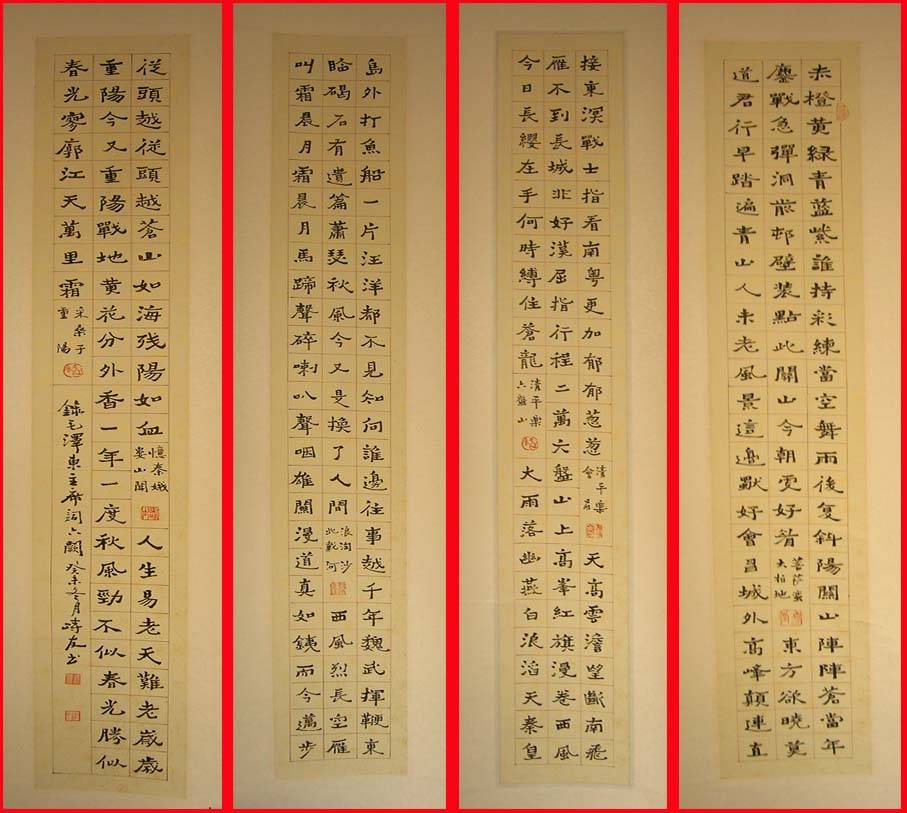 赤橙黄緑青藍紫誰持彩練當空舞雨後复斜陽關山陣陣蒼當年
鏖戰急彈洞前邨壁裝點此關山今朝更好看菩薩蠻大柏地東方欲曉莫
道君行早踏遍青山人未老風景這邊獨好會昌城外高峰顛連直
接東溟戰士指看南粤更加郁郁葱葱清平樂會昌天高雲澹望斷南飛
雁不到長城非好漢屈指行程二萬六盤山上高峯紅旗漫卷西風
今日長纓在手何時縛住蒼龍清平樂六盤山大雨落幽燕白浪滔天秦皇
島外打魚船一片汪洋都不見知向誰邊往事越千年魏武揮鞭東
臨碣石有遺篇蕭瑟秋風今又是換了人間浪淘沙北戴河西風烈長空雁
叫霜晨月霜晨月馬蹄聲碎喇叭聲咽雄關漫道真如鐵而今邁步
從頭越從頭越蒼山如海残陽如血憶秦娥娄山關人生易老天難老歲歲
重陽今又重陽戰地黄花分外香一年一度秋風勁不似春光勝似
春光寥廓江天萬里霜采桑子重陽
錄毛澤東主席詞六闋癸未冬月